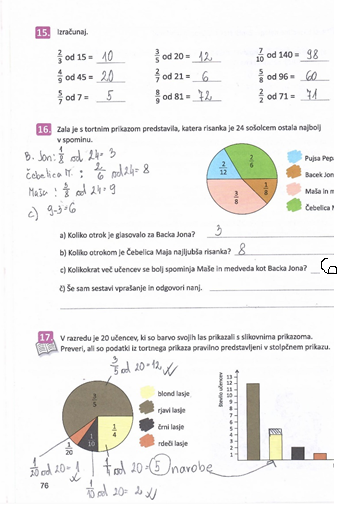 15. Izračunaj.
2/3 od 15 = 10 3/5 od 20 = 12 7/10 od 140 = 98
4/9 od 45 = 20 2/7 od 21 = 6 5/8 od 96 = 60
5/7 od 7 = 5 8/9 od 81 = 72 2/2 od 71 = 71
16. Zala je s tortnim prikazom predstavila, katera risanka je 24 sošolcem ostala najbolj
v spominu.
B. Jon: 1/8 od 24 = 3
čebelica M.: 2/6 od 24 = 8
Maša: 3/8 od 24 = 9
c) 9-3=6
2/6
2/12
3/8
1/8
Pujsa Pepa
Bacek Jon
Maša in m
Čebelica M
a) Koliko otrok je glasovalo za Backa Jona? 3
b) Koliko otrokom je Čebelica Maja najljubša risanka? 8
c) Kolikokrat več učencev se bolj spominja Maše in medveda kot Backa Jona? 6
č) Še sam sestavi vprašanje in odgovori nanj.
17. V razredu je 20 učencev, ki so barvo svojih las prikazali s slikovnima prikazoma.
Preveri, ali so podatki iz tortnega prikaza pravilno predstavljeni v stolpčnem prikazu.
3/5 od 20 = 12
3/5
1/4
1/10
1/20
blond lasje
rjavi lasje
črni lasje
rdeči lasje
število učencev
13
12
11
10
9
8
7
6
5
4
3
2
1
1/20 od 20 = 1
1/4 od 20 = 5 narobe
1/10 od 20 = 2
76